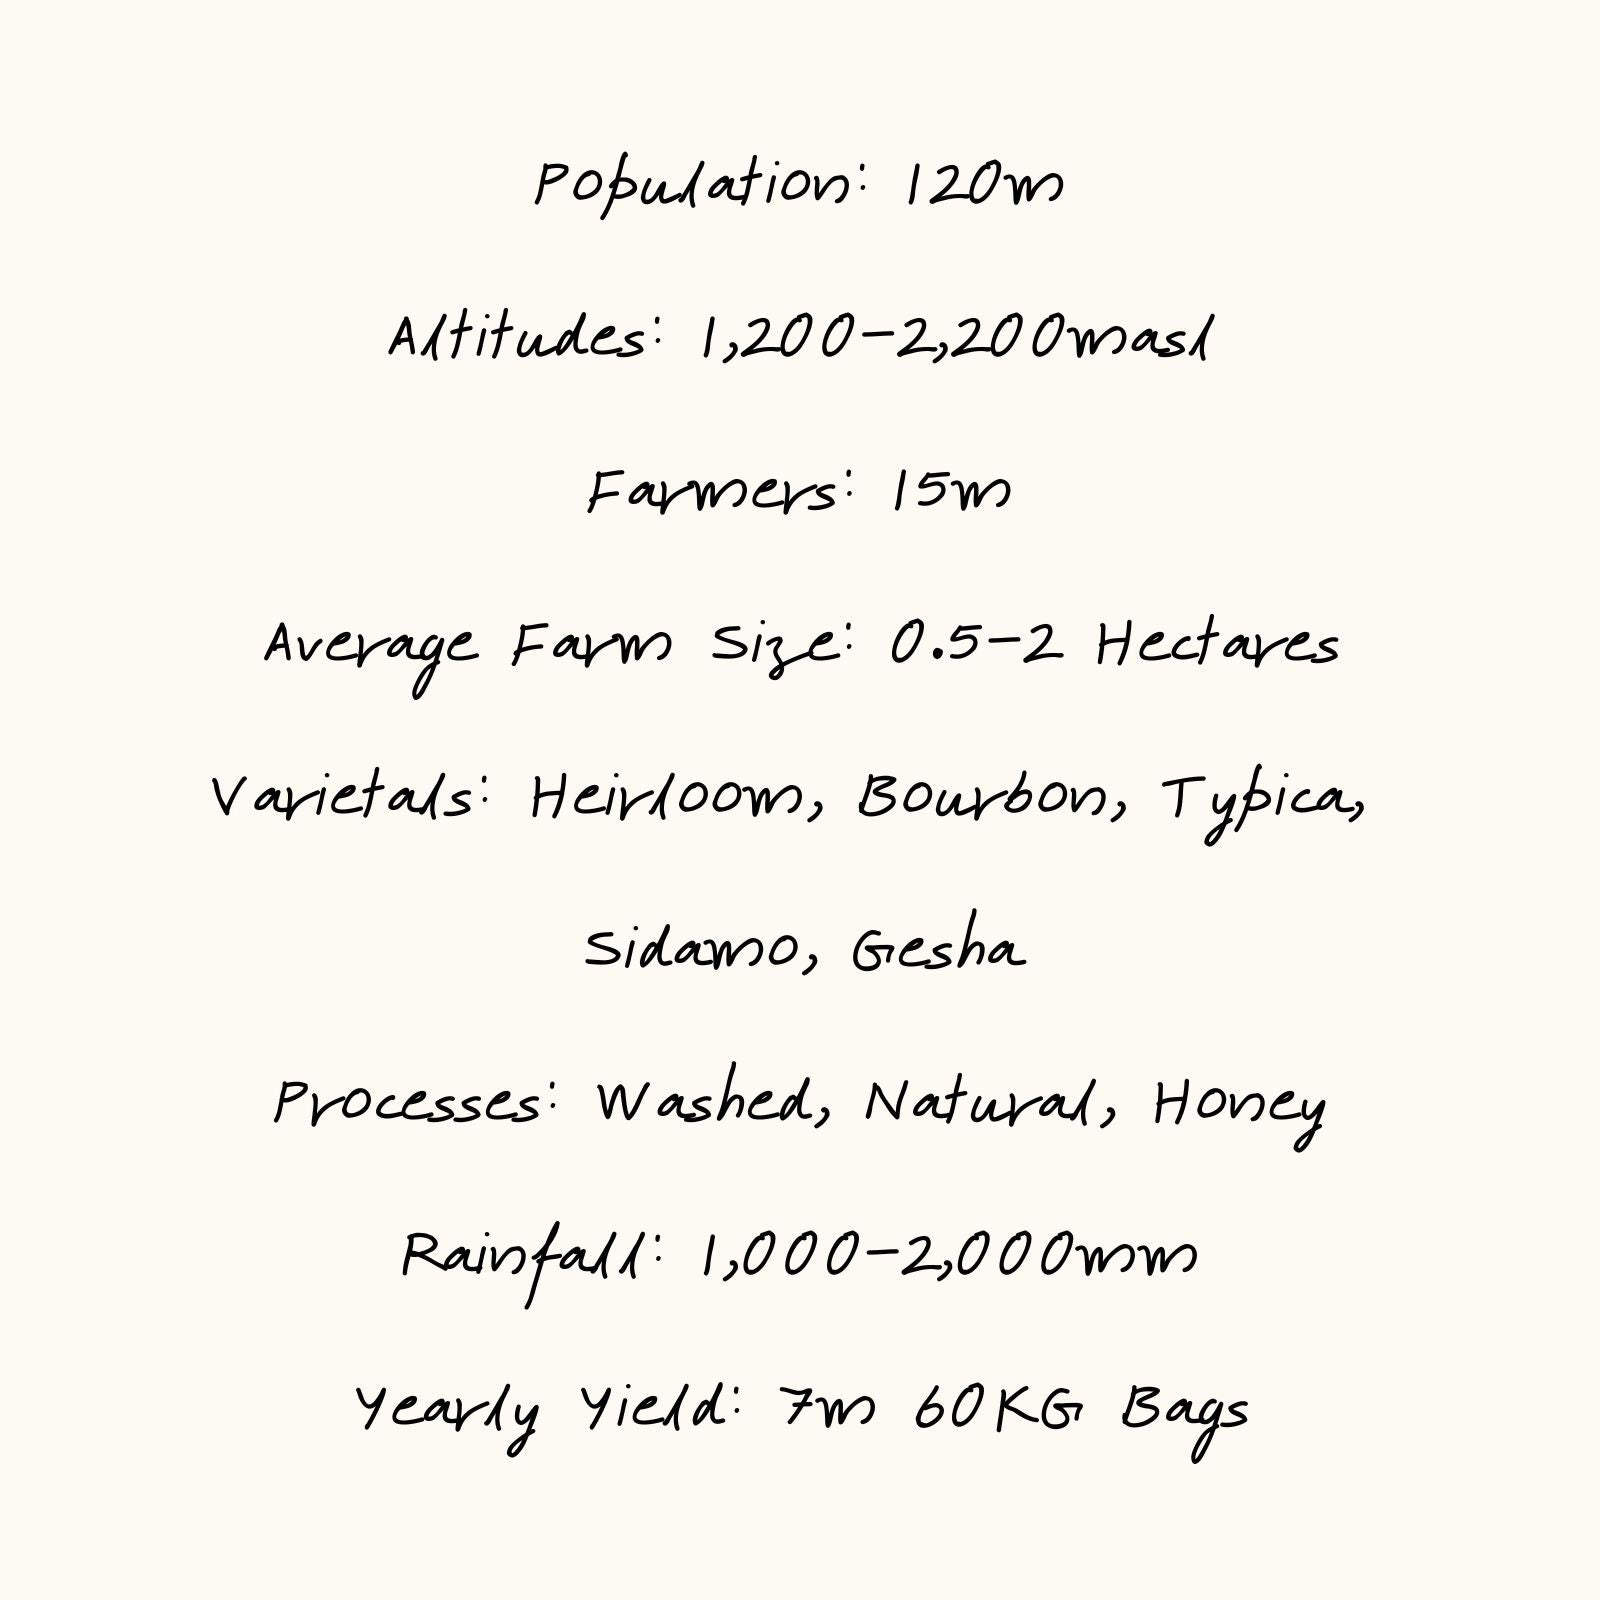 Population: 120m
Altitudes: 1,200-2,200masl
Farmers: 15m
Average Farm Size: 0.5-2 Hectares
Varietals: Heirloom, Bourbon, Typica,
Sidamo, Gesha
Processes: Washed, Natural, Honey
Rainfall: 1,000-2,000mm
Yearly Yield: 7m 60KG Bags